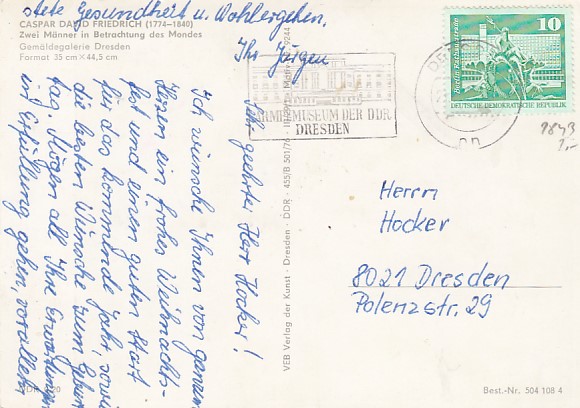 CASPAR DAVID FRIEDRICH (1774—1840)
Zwei Männer in Betrachtung des Mondes
Gemäldegalerie Dresden
Format 35 cm × 44,5 cm
Sehr geehrter Herr Hocker!
Ich wünsche Ihnen von ganzem
Herzen ein frohes Weihnachts-
fest und einen guten Start
für das kommende Jahr, sowie
die besten Wünsche zum Geburts
tag. Mögen all Ihre Erwartungen
in Erfüllung gehen, vor allem
stete Gesundheit u. Wohlergehen.
Ihr Jürgen
VEB Verlag der Kunst · Dresden · DDR · 455/B 501/76
ARMEEMUSEUM DER DDR
DRESDEN
10
Berlin, Rathausstraße
DEUTSCHE DEMOKRATISCHE REPUBLIK
1843
1,-
Herrn
Hocker
8021 Dresden
Polenzstr. 29
Best.-Nr. 504 108 4